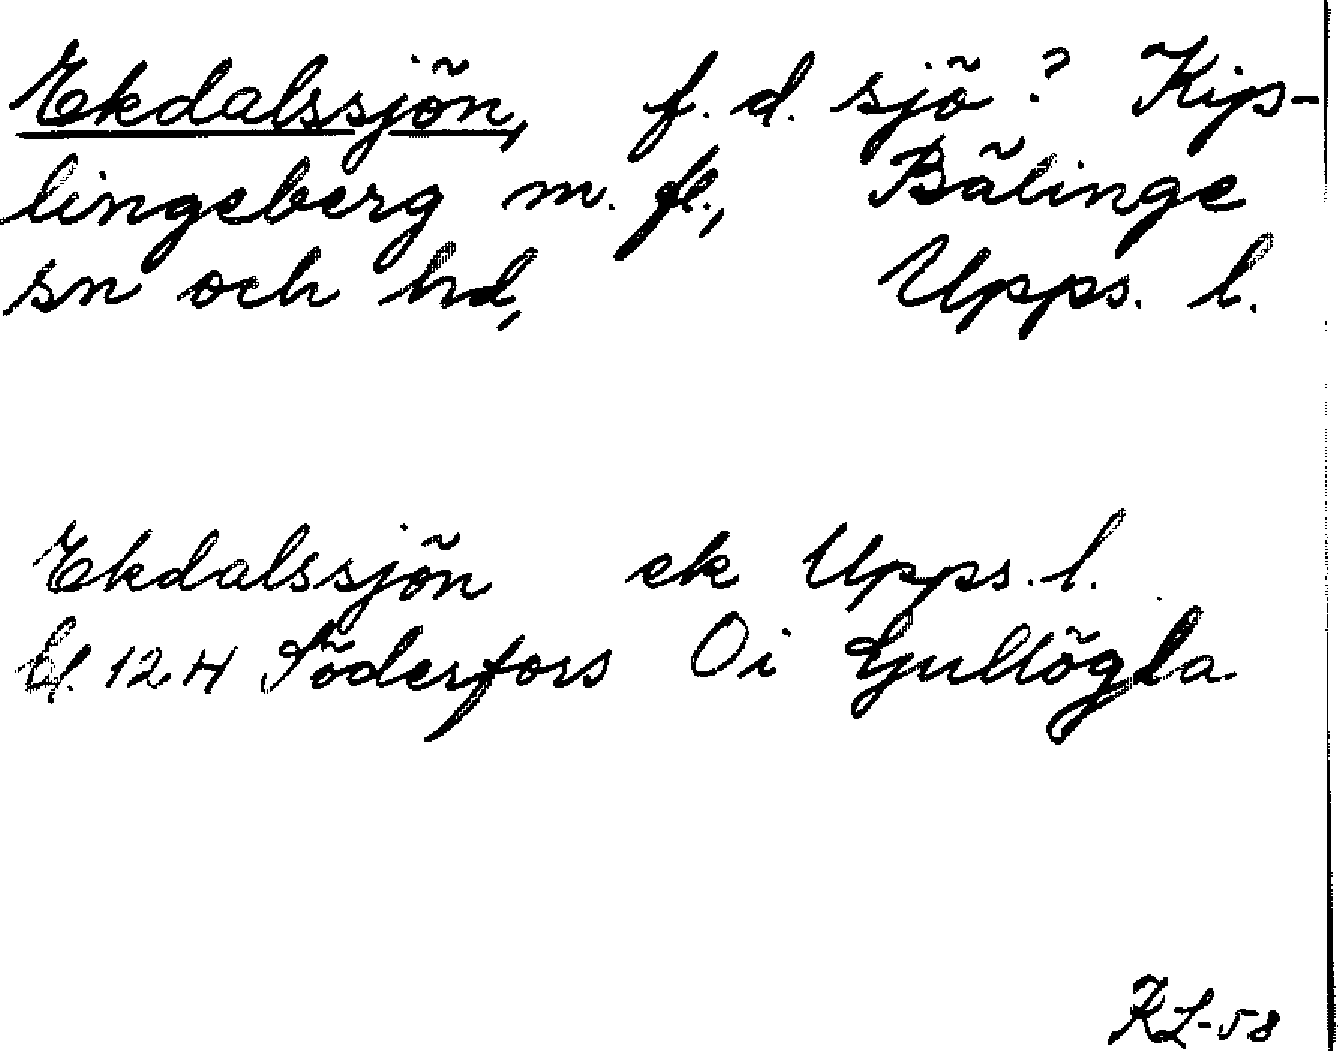 Ekdalssjön, f. d. sjö? Kips-
lingeberg m. fl., Bälinge
sn och hd, Upps. l.
Ekdalssjön ek Upps. l.
bl. 124 Söderfors Oi Gullögla
KL-58